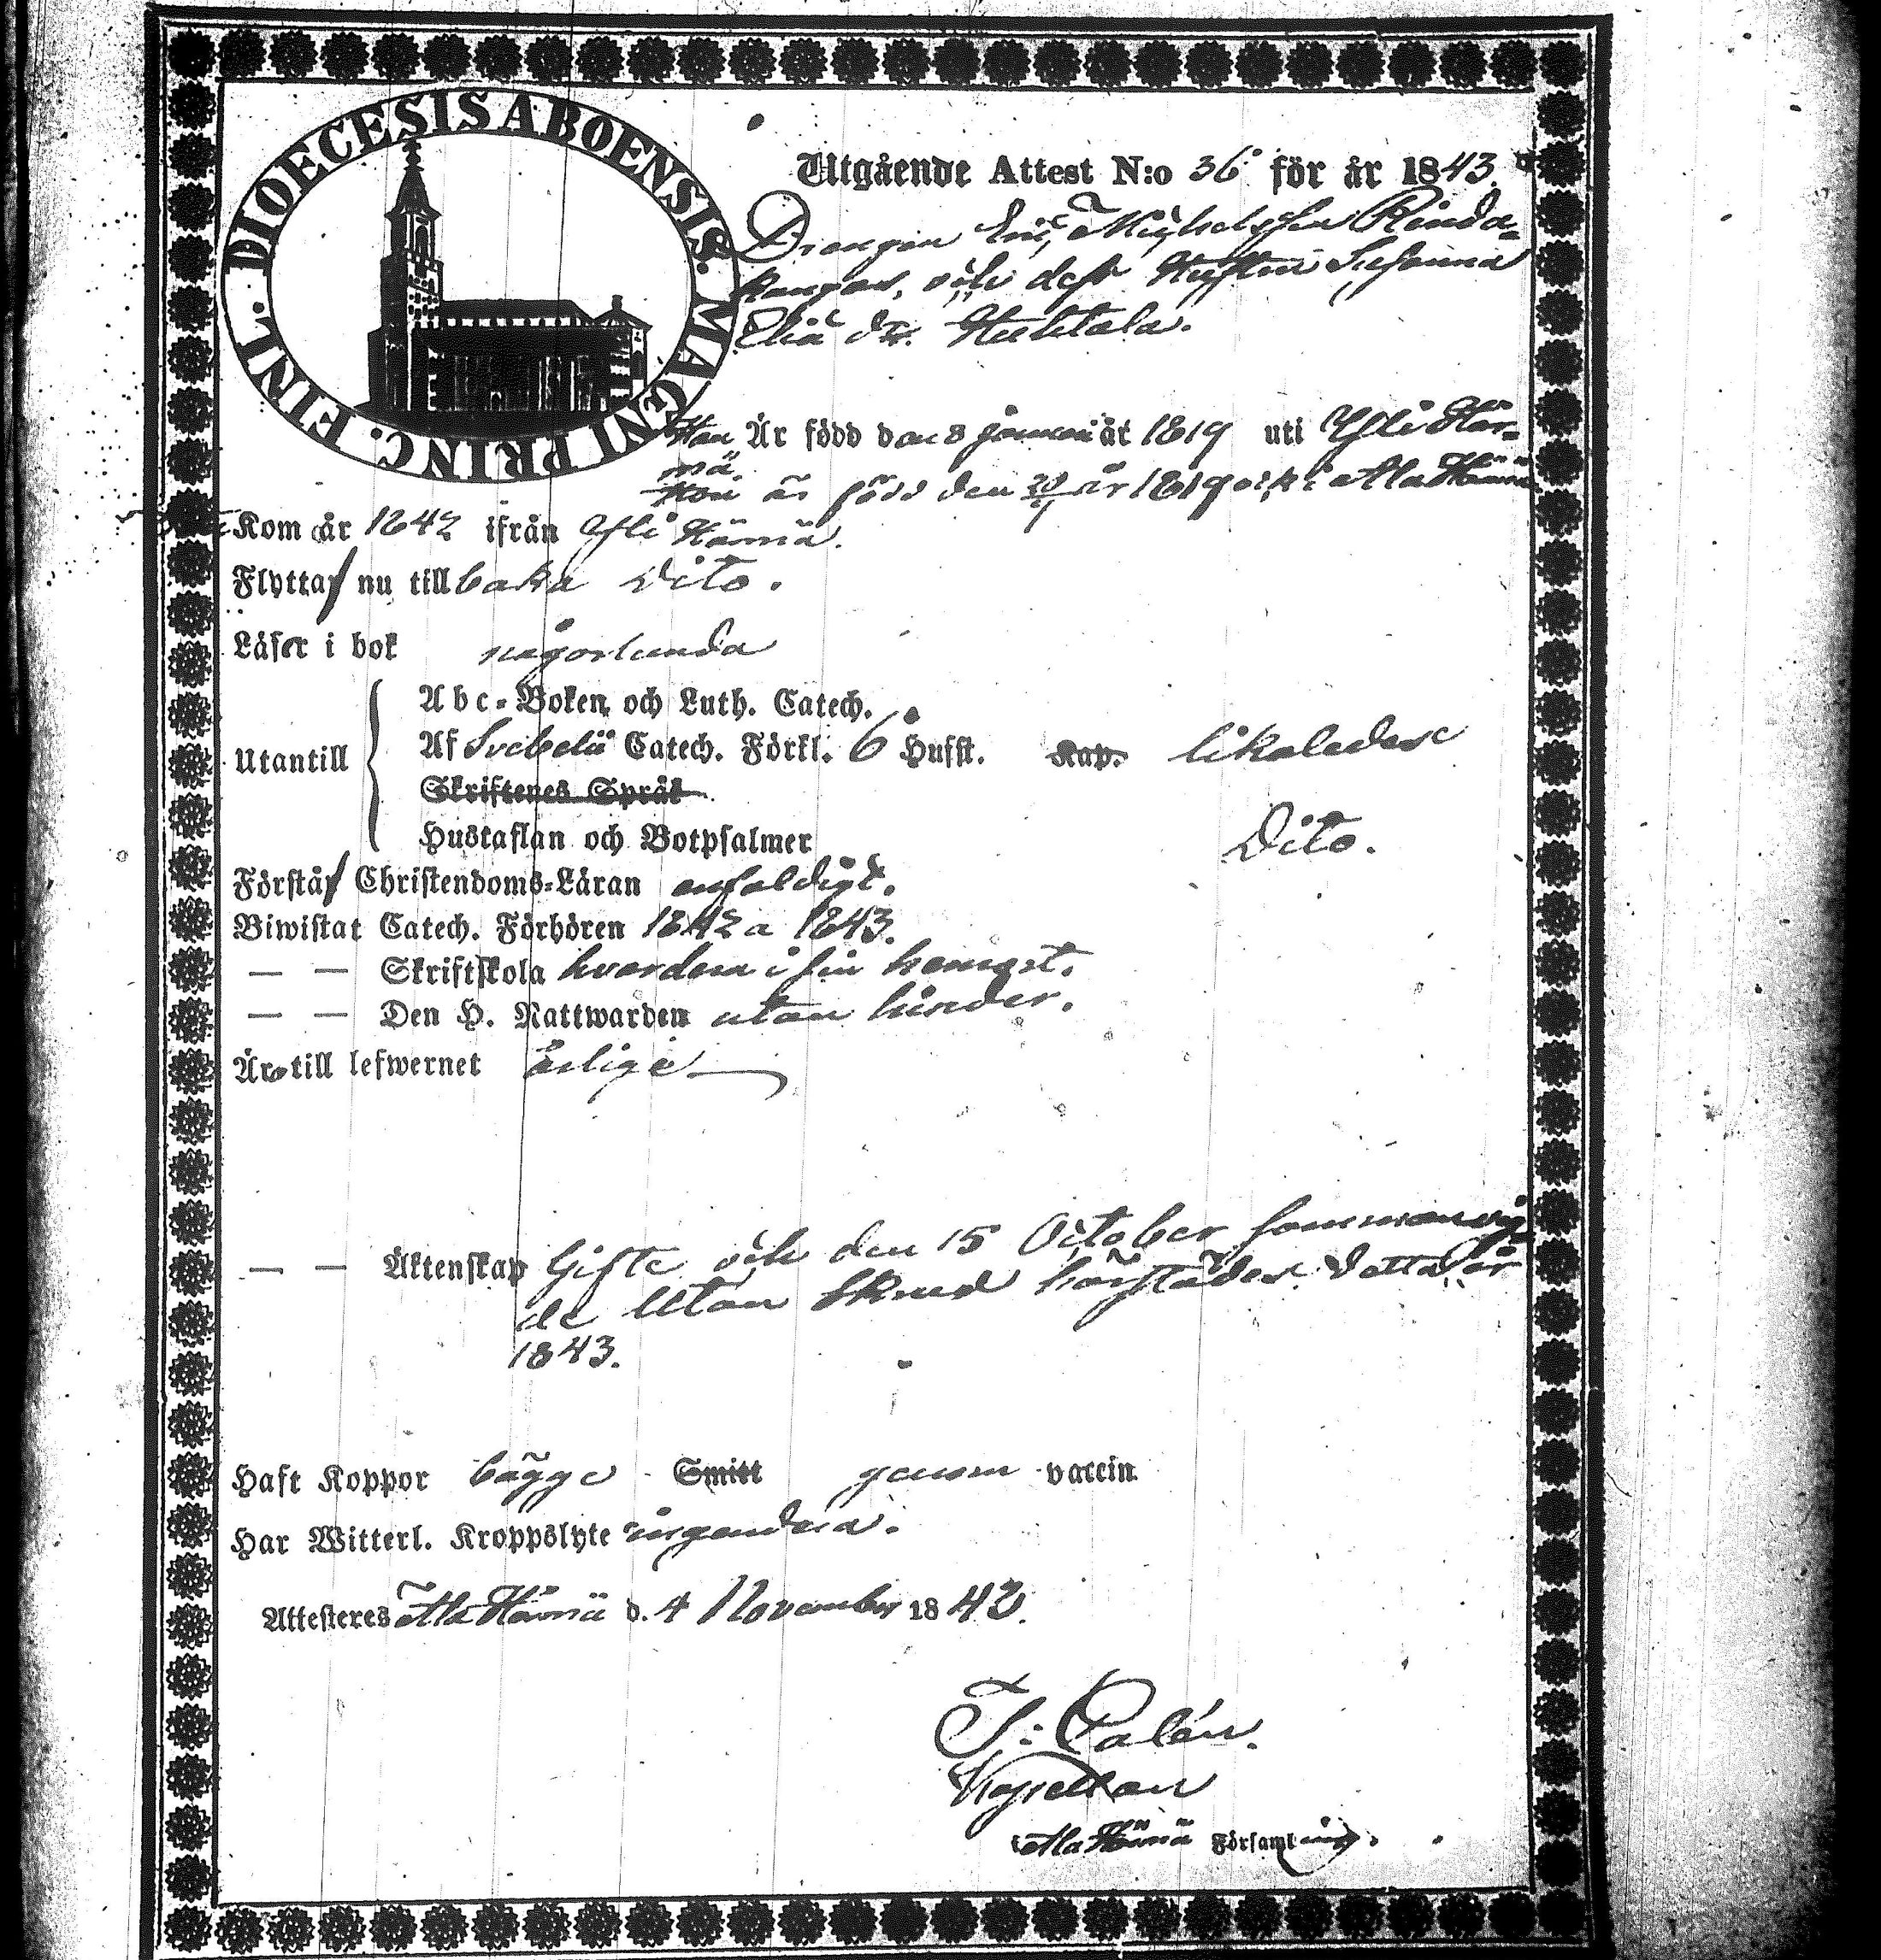 DIOECESIS ABOENSIS. MAGNI PRINC. FINL.
Utgående Attest N:o 36 för år 1843.
Drängen Eric Michelsson Rinda-
kangas, och dess Hustru Susanna
Elia dr. Huhtala.
Han Är född den 8 januari år 1819 uti Ylihär-
mä.
Hon är född den år 1819 ock i Alahärmä
Kom år 1842 ifrån Yli Härmä.
Flytta nu tillbaka Dito.
Läser i bok någorlunda
Abc-Boken och Luth. Catech.
Utantill Af Svebelii Catech. Förkl. 6 Hufst. Kap. likaledes
Skriftenes Språk
Hustaflan och Botpsalmer Dito.
Förstå Christendoms-Läran enfaldigt.
Biwistat Catech. Förhören 1842 a 1843.
— — Skriftskola hvardera i sin hemort.
— — Den H. Nattwarden utan hinder.
Äro till lefwernet ärlige
— — Äktenskap Gifte och den 15 October sammanvig-
de utan Skrud härstädes detta år
1843.
Haft Koppor bägge Smitt genom vaccin
Har Witterl. Kroppslyte ingendera.
Attesteres Ala Härmä d. 4 November 1843.
J: Palén.
Kapellan
Ala Härmä Församling.